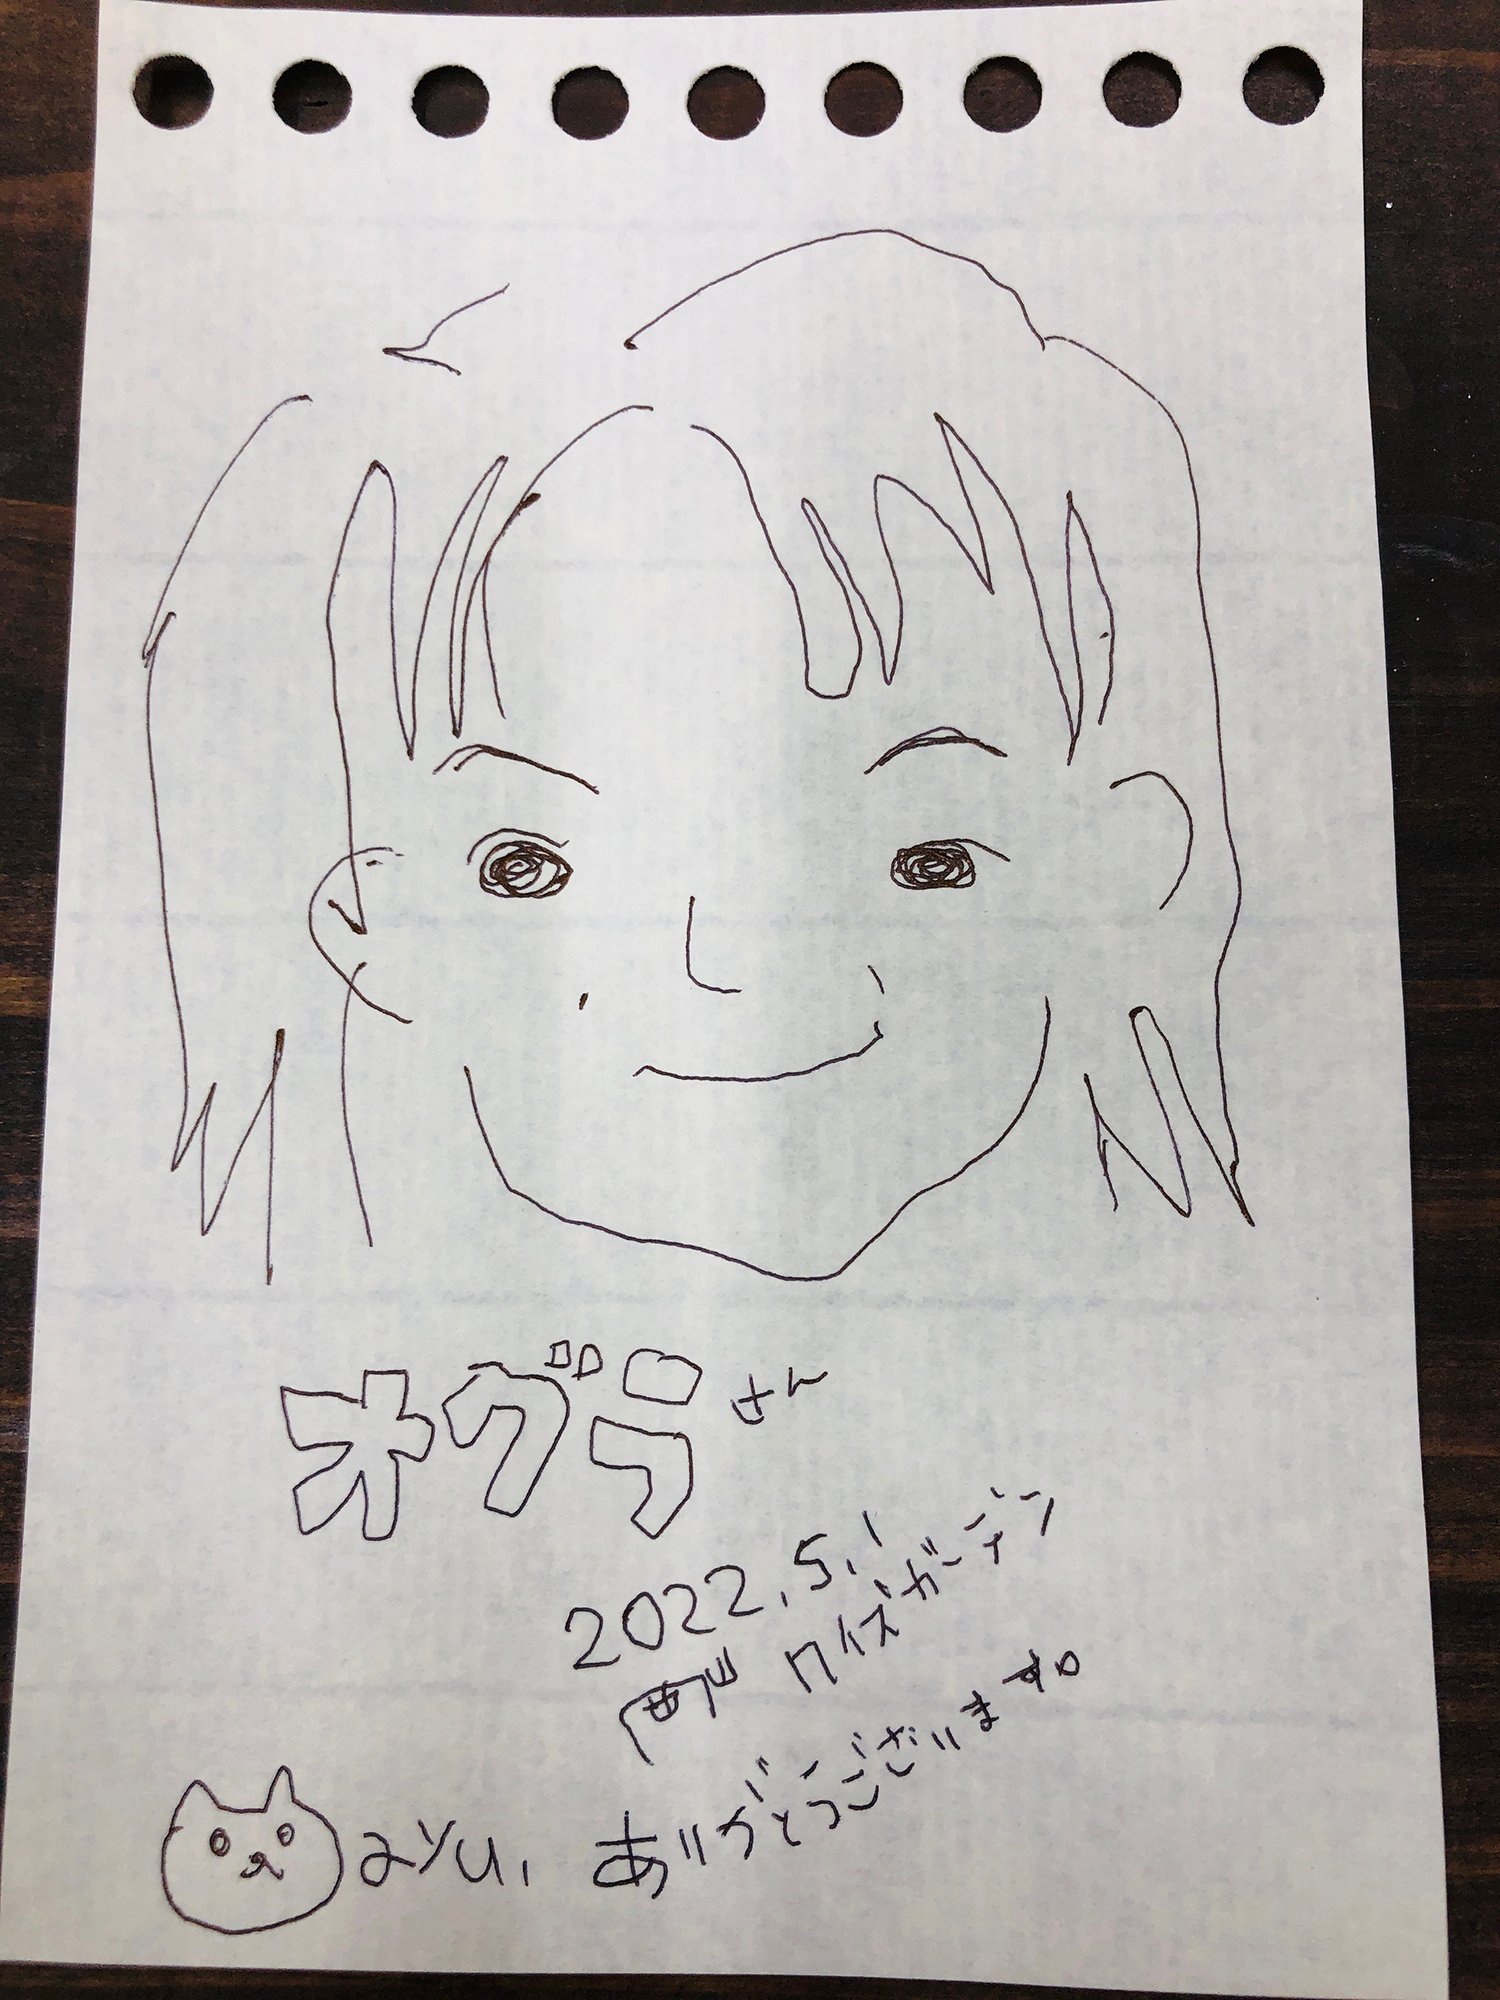 オグラさん
2022.5.1
ワイズガーデン
ayu. ありがとうございます。